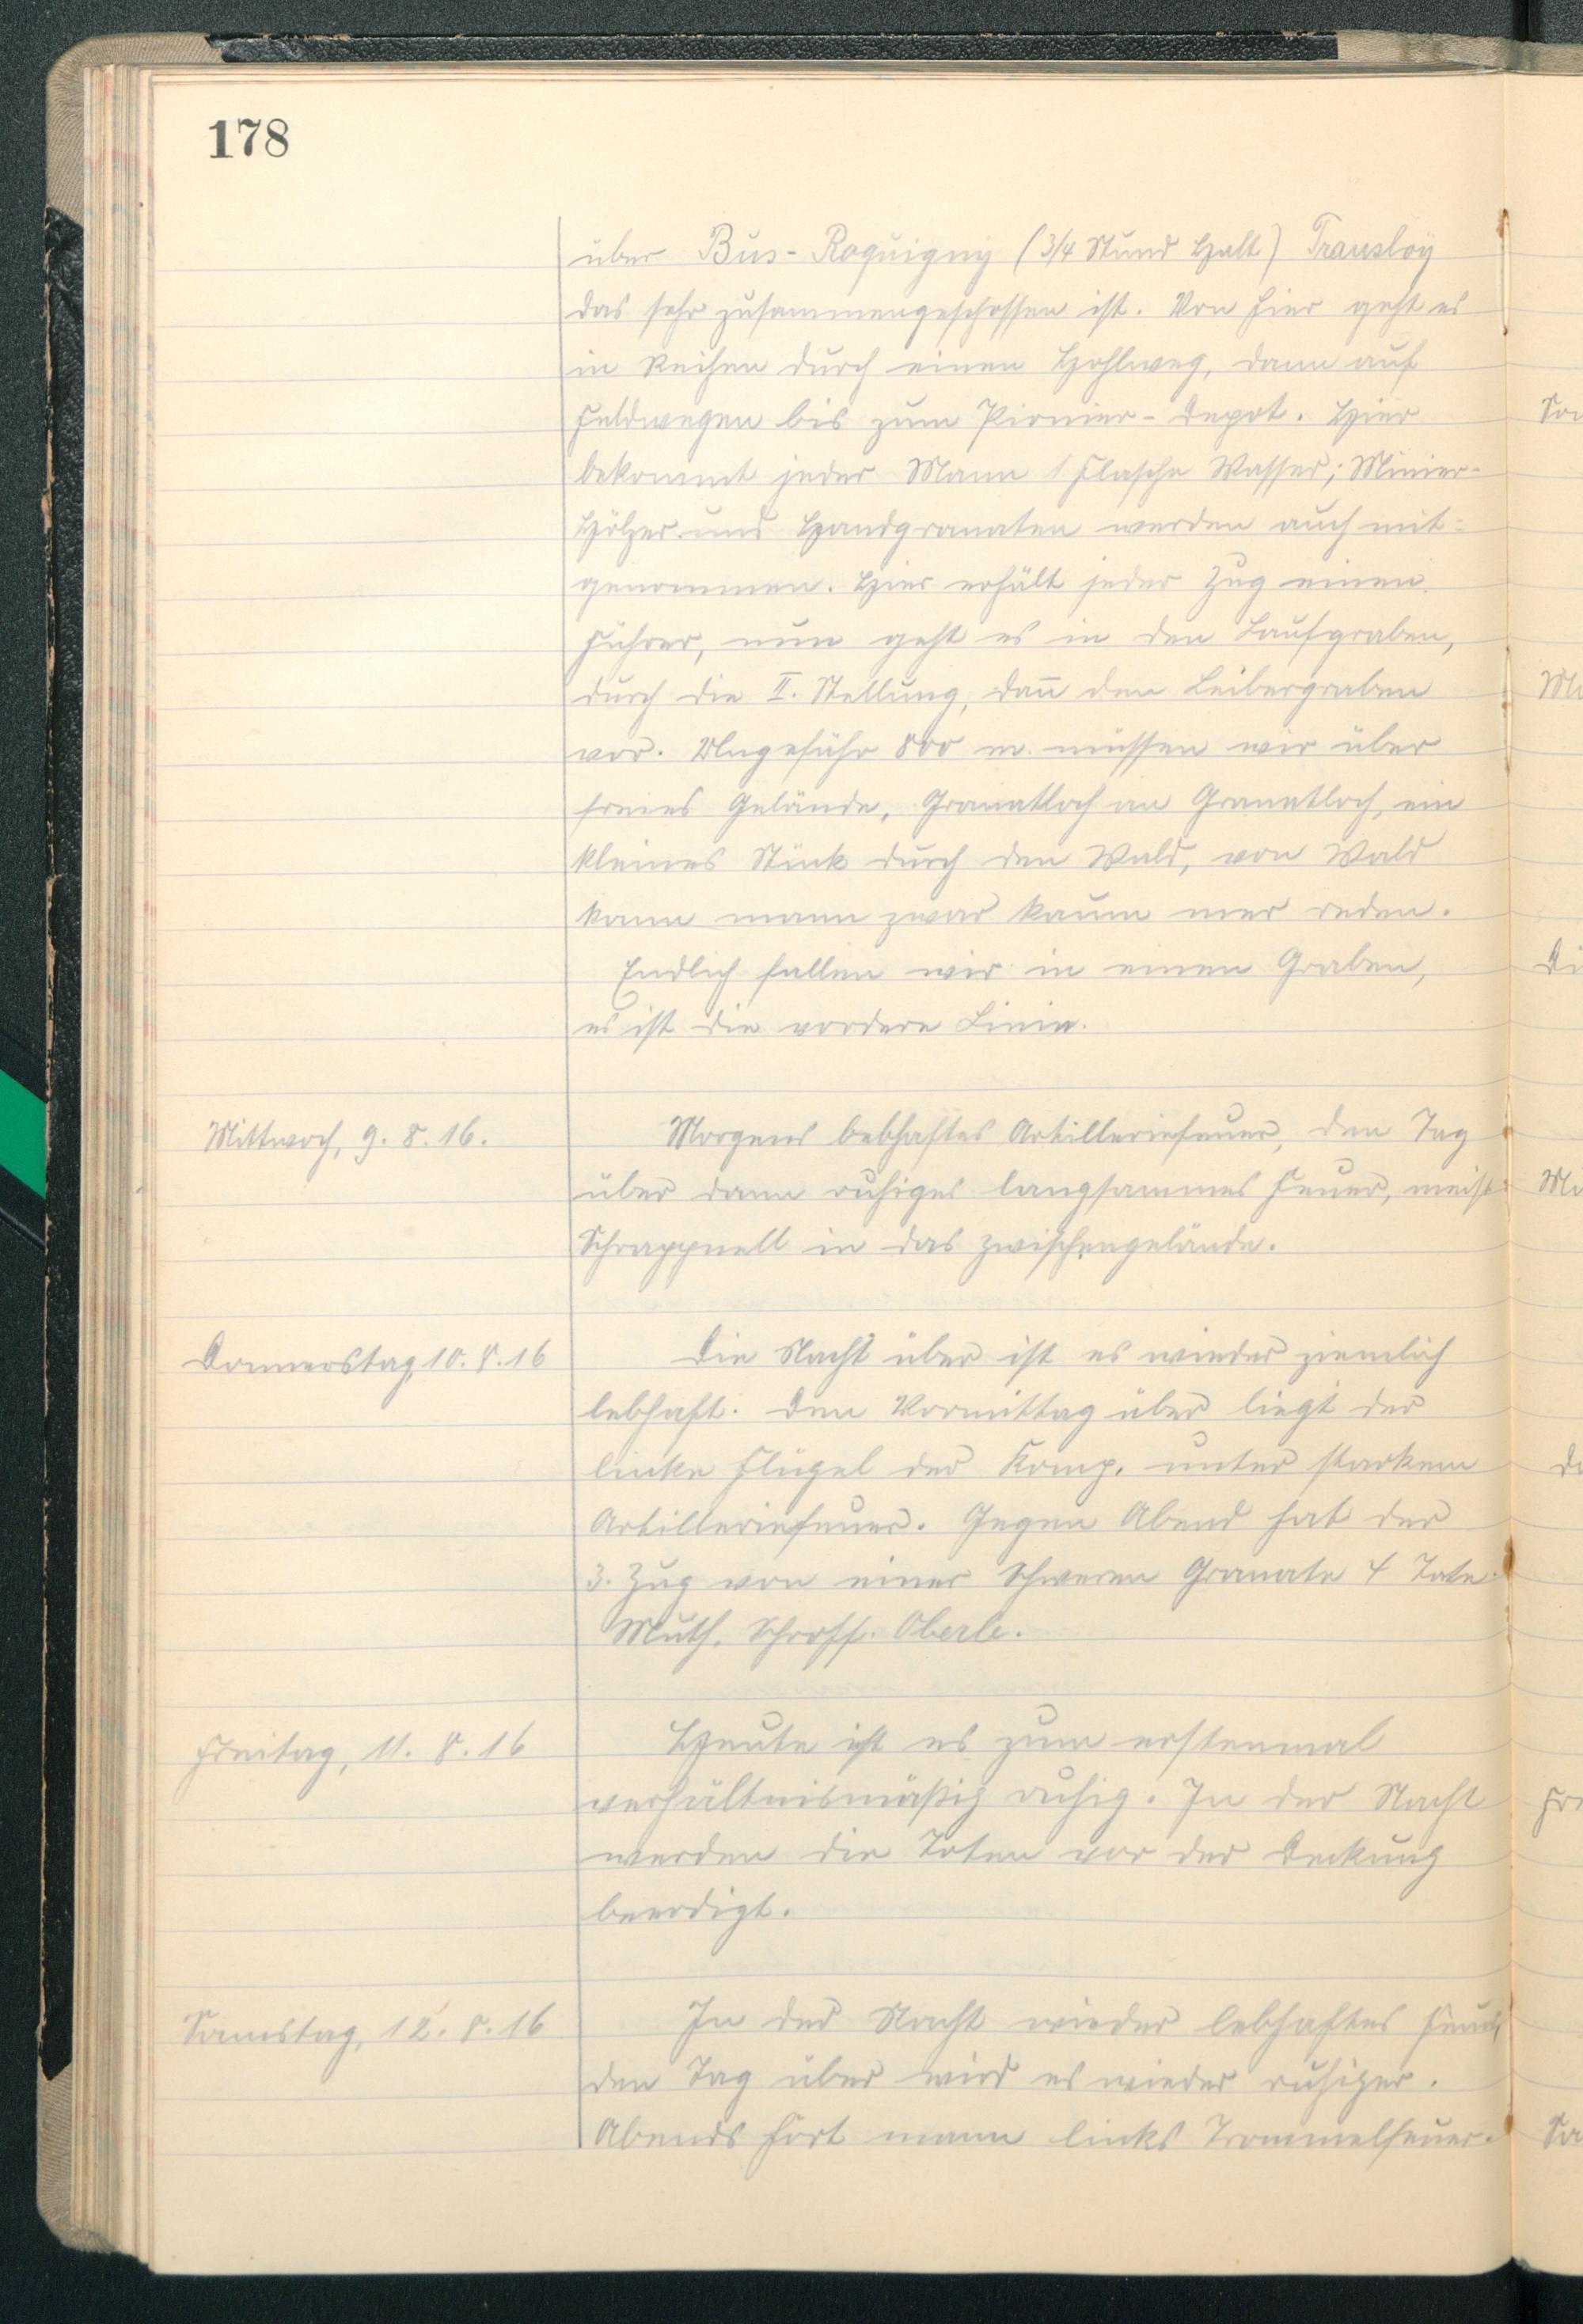 178
über Bus-Roquigny (3/4 Stund Halt) Transloÿ
das sehr zusammengeschossen ist. Von hier geht es
in Reihen durch einen Hohlweg, dann auf
Feldwegen bis zum Pionier-Depot. Hier
bekommt jeder Mann 1 Flasche Wasser; Minier-
Hölzer und Handgranaten werden auch mit-
genommen. Hier erhält jeder Zug einen
Führer, nun geht es in den Laufgraben,
durch die II. Stellung, dañ den Leibergraben
vor. Ungefähr 800 m. müssen wir über
freies Gelände, Granatloch an Granatloch, ein
kleines Stück durch den Wald, von Wald
kann mann zwar kaum mer reden.
Endlich fallen wir in einen Graben,
es ist die vordere Linie.
Mittwoch, 9. 8. 16.
Morgens lebhaftes Artilleriefeuer, den Tag
über dann ruhiges langsammes Feuer, meist
Schrappnell in das zwischengelände.
Donnerstag, 10. 8. 16
Die Nacht über ist es wieder ziemlich
lebhaft. Den Vormittag über liegt der
linke Flügel der Komp. unter starkem
Artilleriefeuer. Gegen Abend hat der
3. Zug von einer Schweren Granate 4 Tote.
Muth. Schroff. Oberle.
Freitag, 11. 8. 16
Heute ist es zum erstenmal
verhältnismäßig ruhig. In der Nacht
werden die Toten vor der Deckung
beerdigt.
Samstag, 12. 8. 16
In der Nacht wieder lebhaftes Feuer,
den Tag über wird es wieder ruhiger.
Abends hört mann links Trommelfeuer.